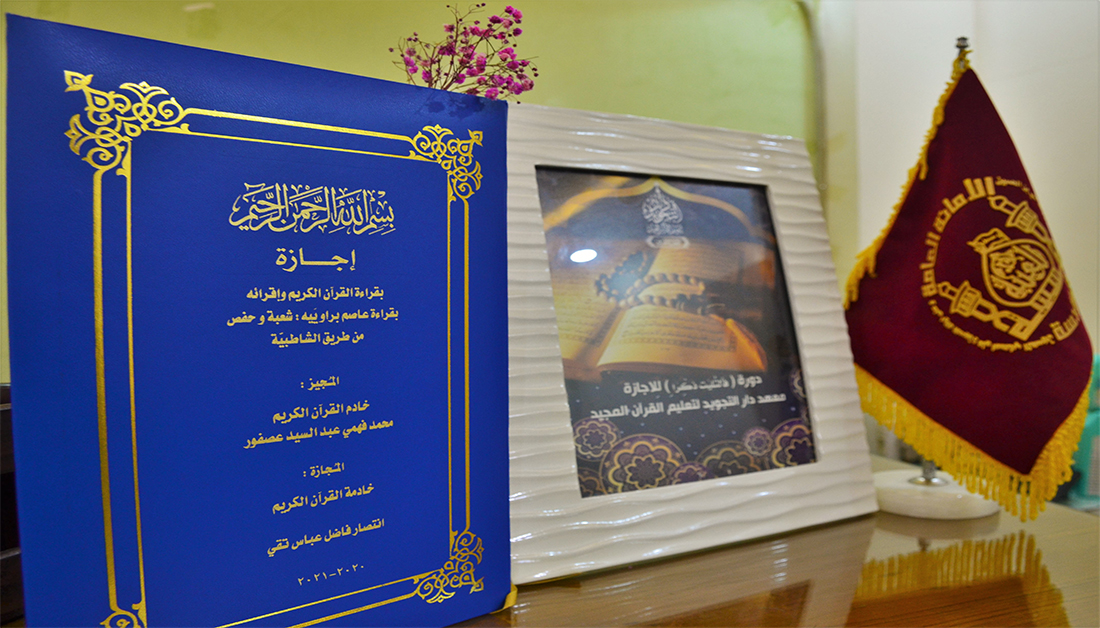 بسم الله الرحمن الرحيم
إجازة
بقراءة القرآن الكريم وإقرائه
بقراءة عاصم براوييه : شعبة و حفص
من طريق الشاطبيّة
المُجيز :
خادم القرآن الكريم
محمد فهمي عبد السيد عصفور
المُجازة :
خادمة القرآن الكريم
انتصار فاضل عباس تقي
٢٠٢٠-٢٠٢١
دورة ( فالتليت ذكرا ) للاجازة
معهد دار التجويد لتعليم القرآن المجيد
الأمانة العامة